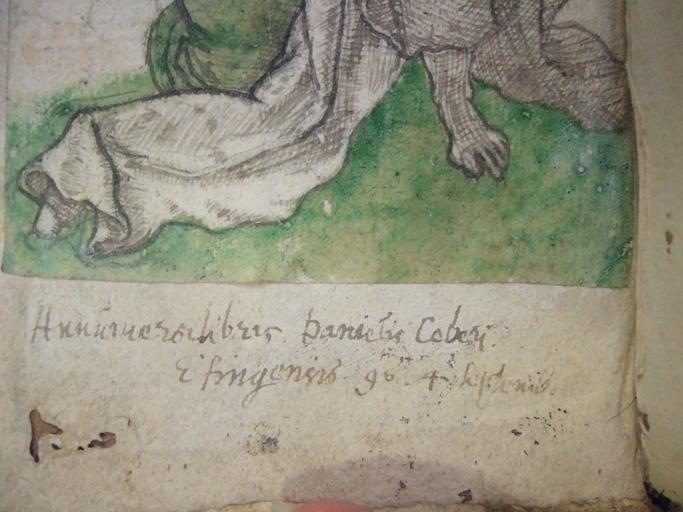 Annumeror libris Danielis Coberi
Efingensis 96. 4